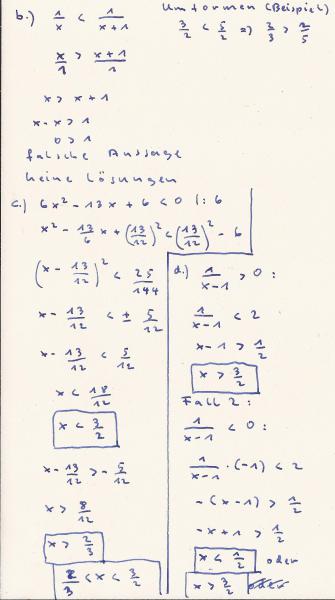 b.) 1/x < 1/(x+1)
Umformen (Beispiel)
3/2 < 5/2 => 2/3 > 2/5
x/1 > (x+1)/1
x > x+1
x-x > 1
0 > 1
falsche Aussage
keine Lösungen
c.) 6x² - 13x + 6 < 0 | : 6
x² - 13/6 x + (13/12)² < (13/12)² - 6
(x - 13/12)² < 25/144
x - 13/12 < ± 5/12
x - 13/12 < 5/12
x < 18/12
x < 3/2
x - 13/12 > - 5/12
x > 8/12
x > 2/3
2/3 < x < 3/2
d.) 1/(x-1) > 0 :
1/(x-1) < 2
x-1 > 1/2
x > 3/2
Fall 2 :
1/(x-1) < 0 :
1/(x-1) · (-1) < 2
-(x-1) > 1/2
-x+1 > 1/2
x < 1/2 oder
x > 3/2